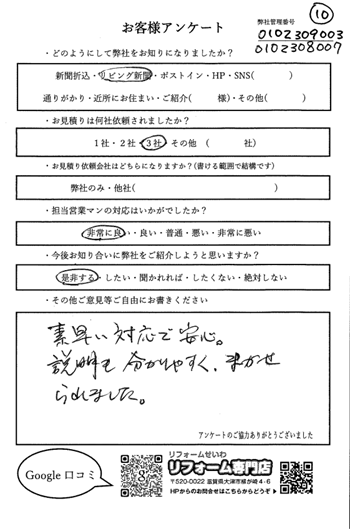 ⑩
お客様アンケート
弊社管理番号
0102309003
0102308007
・どのようにして弊社をお知りになりましたか？
新聞折込・リビング新聞・ポストイン・HP・SNS(　　　)
通りがかり・近所にお住まい・ご紹介(　　　様)・その他(　　　)
・お見積りは何社依頼されましたか？
1社・2社・3社・その他（　　　社）
・お見積り依頼会社はどちらになりますか？(書ける範囲で結構です)
弊社のみ・他社(　　　)
・担当営業マンの対応はいかがでしたか？
非常に良い・良い・普通・悪い・非常に悪い
・今後お知り合いに弊社をご紹介しようと思いますか？
是非する・したい・聞かれれば・したくない・絶対しない
・その他ご意見等ご自由にお書きください
素早い対応で安心。
説明も分かりやすく、まかせ
られました。
アンケートのご協力ありがとうございました
Google 口コミ
リフォームせいわ
リフォーム専門店
〒520-0022 滋賀県大津市柳が崎4-6
HPからのお問合せはこちらからどうぞ